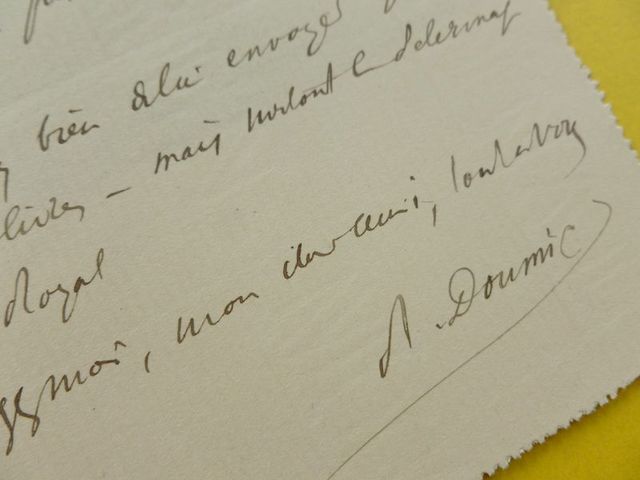 bien de lui envoyer
livres – mais surtout le
Royal
moi, mon cher ami, tout à vous
R. Doumic